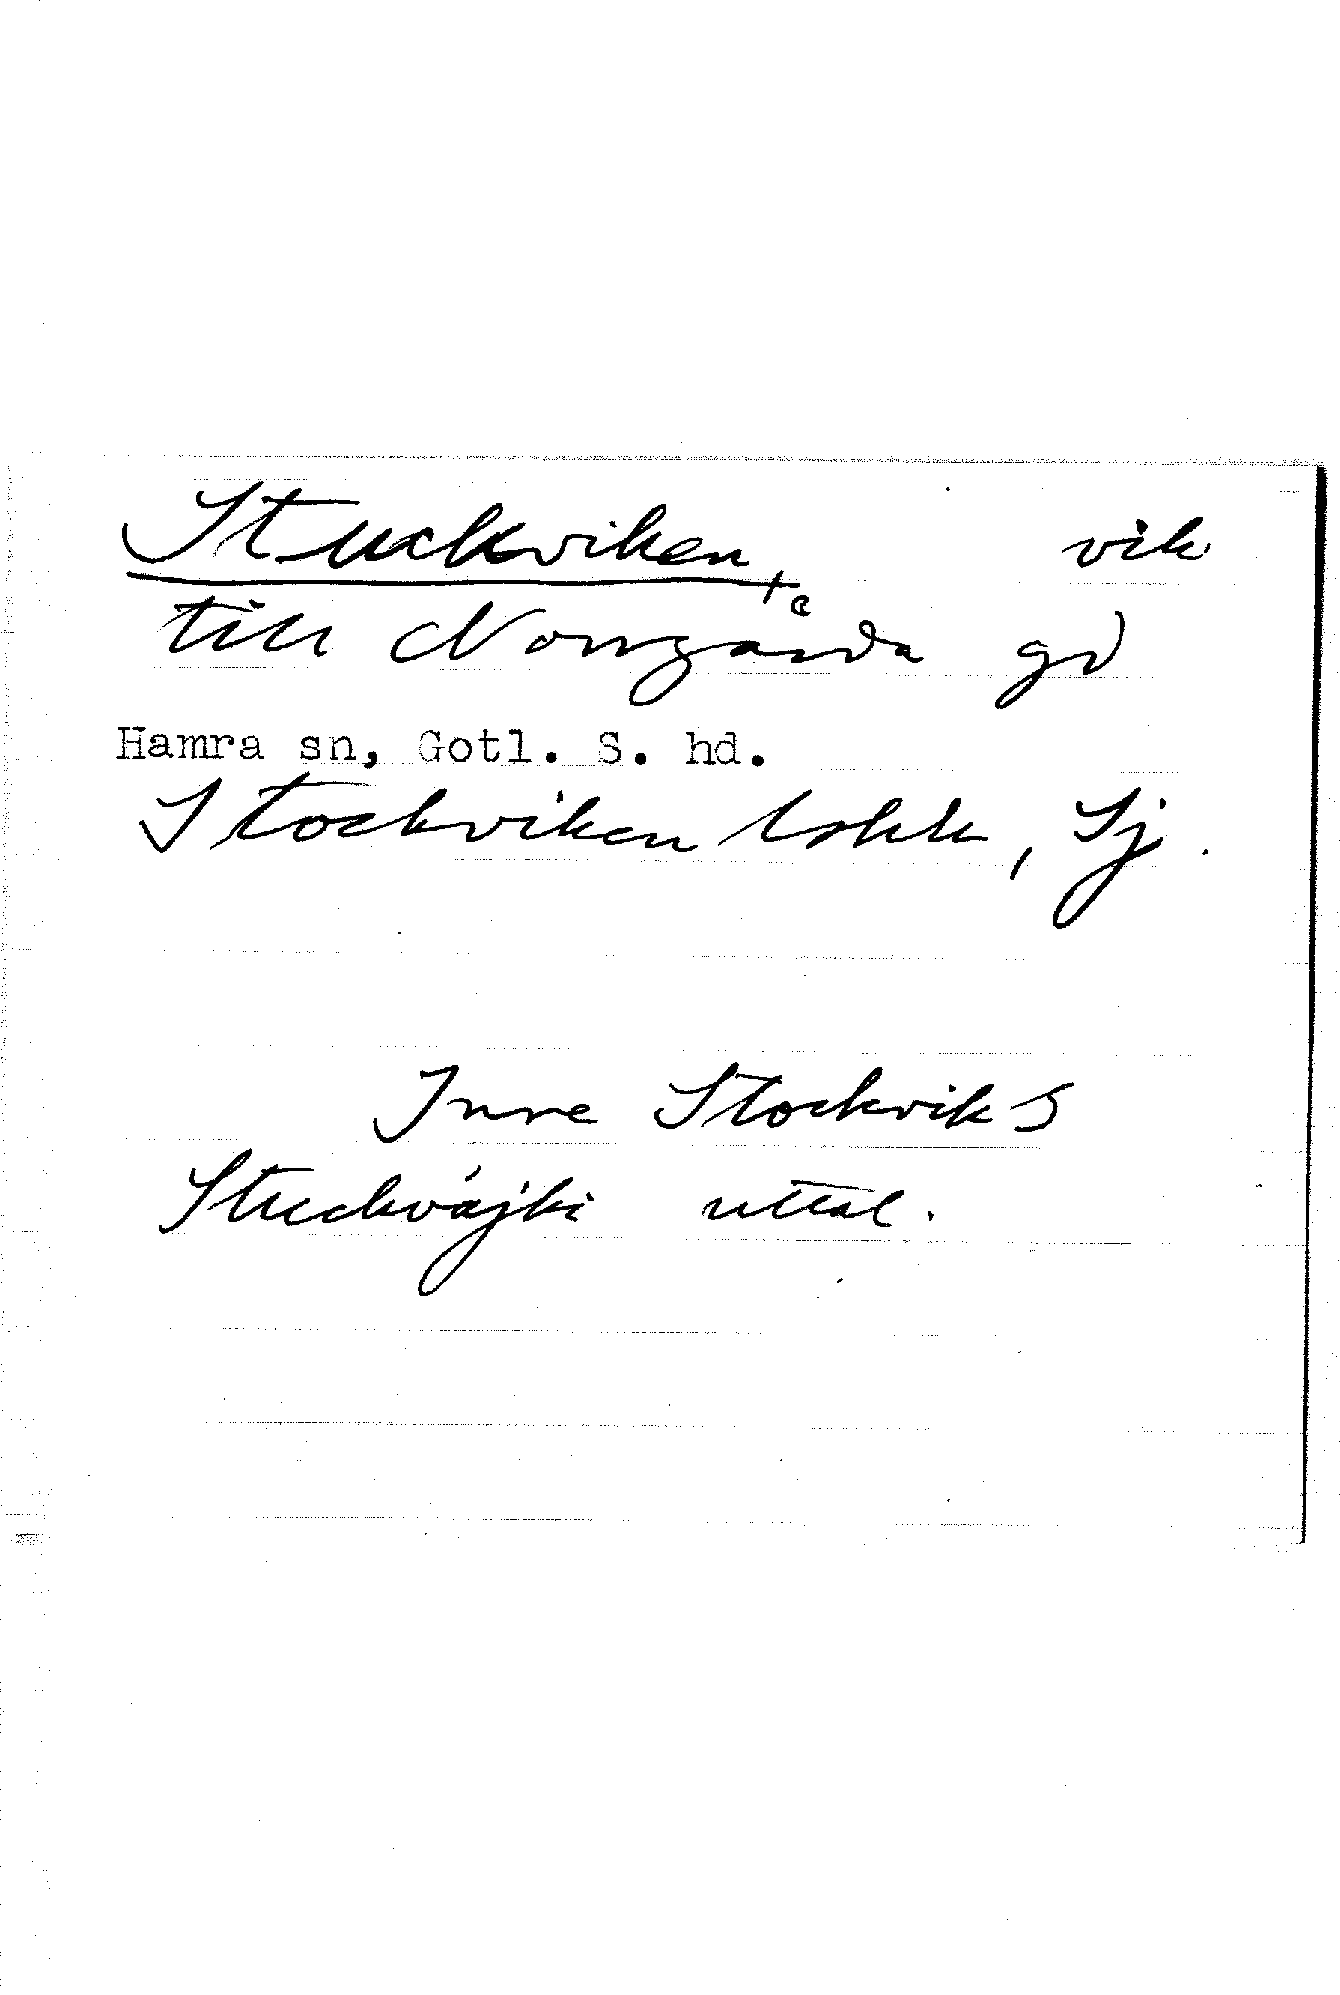 Stuckviken, vik
till Norrgårda gd
Hamra sn, Gotl. S. hd.
Stockviken Sj.
Inre Stockvik S
Stuckvájki uttal.